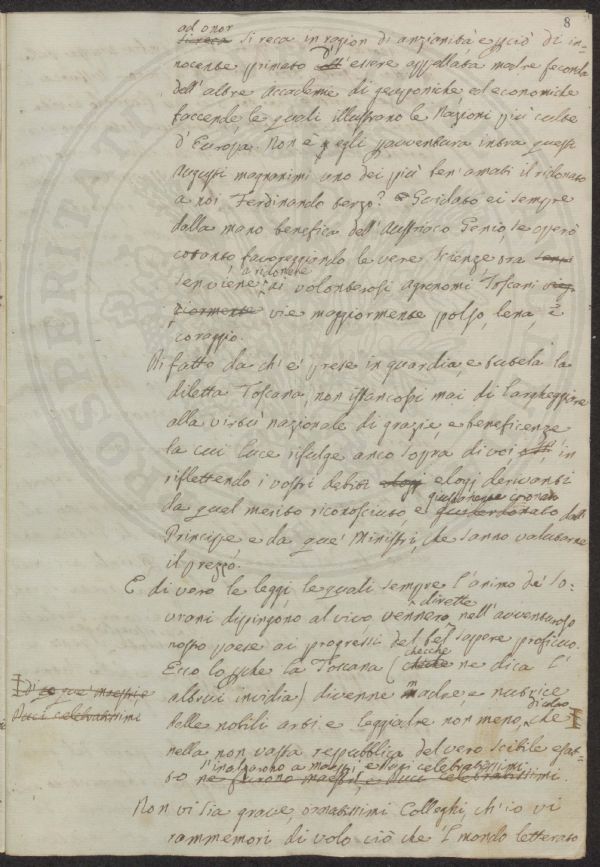 8
ad onor
si reca si reca in ragion di anzianità e perciò di in-
nocente primato d' essere appellata madre feconda
dell' altre Accademie di geoponiche ed economiche
faccende, le quali illustrano le Nazioni più culte
d' Europa. Non è egli per avventura intra questi
Augusti magnanimi uno dei più ben' amati il ridonato
a noi Ferdinando terzo? Guidato ei sempre
dalla mano benefica dell' Austriaco Genio, se operò
cotanto favoreggiando le vere scienze,
a ridonare
sen viene ai volonterosi Agronomi Toscani
vie maggiormente polso, lena, e
coraggio.
Di fatto da ch' e' prese in guardia, e tutela la
diletta Toscana, non istancossi mai di largheggiare
alla virtù nazionale di grazie, e beneficenze
la cui luce rifulge anco sopra di voi, in
riflettendo i vostri debiti elogj elogj derivanti
da quel merito riconosciuto, e guiderdonato dal
Principe e da que' Ministri, che sanno valutarne
il prezzo.
E di vero le leggi, le quali sempre l' animo de' So-
dirette
vrani dipingono al vivo vennero nell' avventuroso
nostro paese ai progressi del bel sapere proficuo.
checche
Ecco lo perche la Toscana ( ne dica l'
altrui invidia) divenne madre, e nutrice
delle nobili arti e leggiadre non meno, che
di que' maestri, e
Duci celebratissimi
nella non vasta repubblica del vero scibile esat-
s' inalzarono a maestri, e Duci celebratissimi
to ne furono maestri, e Duci celebratissimi.
Non vi sia grave, ornatissimi Colleghi, ch' io vi
rammemori di volo ciò che 'l mondo letterato
PROSPERITATI